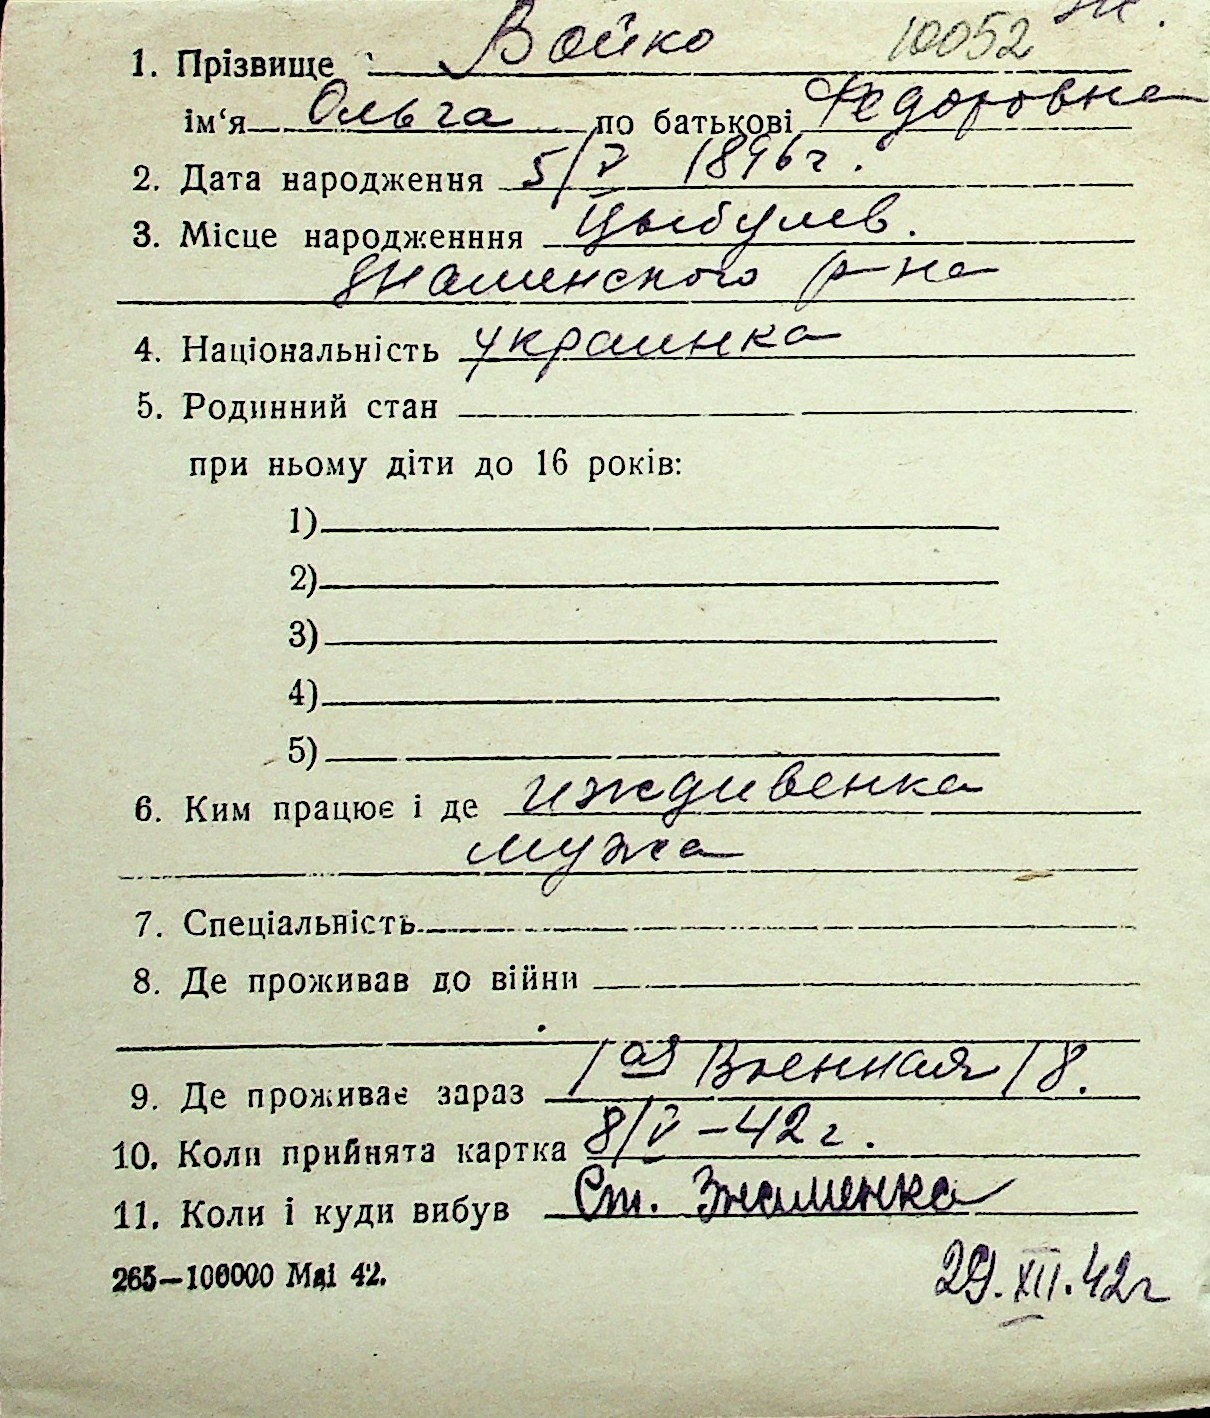 1. Прізвище Бойко 10052
ім‘я Ольга по батькові Федоровна
2. Дата народження 5/V 1896 г.
3. Місце народженння Цыбулев.
Знаменского р-на
4. Національність украинка
5. Родинний стан
при ньому діти до 16 років:
1)
2)
3)
4)
5)
6. Ким працює і де иждивенка
мужа
7. Спеціальність
8. Де проживав до війни
9. Де проживає зараз 1ая Военная 18.
10. Коли прийнята картка 8/V – 42 г.
11. Коли і куди вибув Ст. Знаменка
265—100000 Маі 42.
29.XII.42г